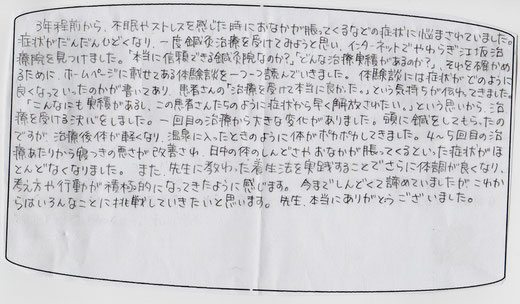 3年程前から、不眠やストレスを感じた時におなかが脹ってくるなどの症状に悩まされていました。
症状がだんだんひどくなり、一度鍼灸治療を受けてみようと思い、インターネットでやわらぎ江坂治
療院を見つけました。「本当に信頼できる鍼灸院なのか?」「どんな治療実績があるのか?」、それを確かめ
るために、ホームページに載せてある体験談を一つ一つ読んでいきました。体験談には症状がどのように
良くなっていったのかが書いてあり、患者さんの「治療を受けて本当に良かった。」という気持ちが伝わってきました。
「こんなにも実績があるし、この患者さんたちのように症状から早く解放されたい。」という思いから、治
療を受ける決心をしました。一回目の治療から大きな変化がありました。頭に鍼をしてもらったの
ですが、治療後体が軽くなり、温泉に入ったときのように体がポカポカしてきました。4〜5回目の治
療あたりから寝つきの悪さが改善され、日中の体のしんどさやおなかが脹ってくるといった症状がほ
とんどなくなりました。また、先生に教わった養生法を実践することでさらに体調が良くなり、
考え方や行動が積極的になってきたように感じます。今までしんどくて諦めていましたがこれか
らはいろんなことに挑戦していきたいと思います。先生、本当にありがとうございました。